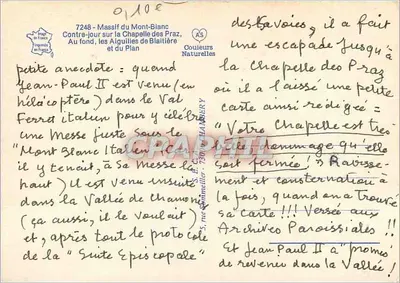 0,10€
7248 - Massif du Mont-Blanc
Contre-jour sur la Chapelle des Praz,
Au fond, les Aiguilles de Blaitière
et du Plan
Couleurs
Naturelles
petite anecdote : quand
Jean-Paul II est venu (en
hélicoptère) dans le Val
Ferret italien pour y célébrer
une messe juste sous le
"Mont Blanc Italien"
il y tenait, à sa messe là
haut) Il est venu ensuite
dans la Vallée de Chamonix
(ça aussi, il le voulait)
et, après tout le protocole
de la "Suite Episcopale"
des Savoies, il a fait
une escapade jusqu'à
la Chapelle des Praz
où il a laissé une petite
carte ainsi rédigée :
"Votre Chapelle est très
hommage qu'elle
soit fermée" ! Ravisse-
ment et consternation à
la fois, quand on a trouvé
sa carte !!! Versée aux
Archives Paroissiales !!
Et Jean Paul II a "promis"
de revenir dans la Vallée !